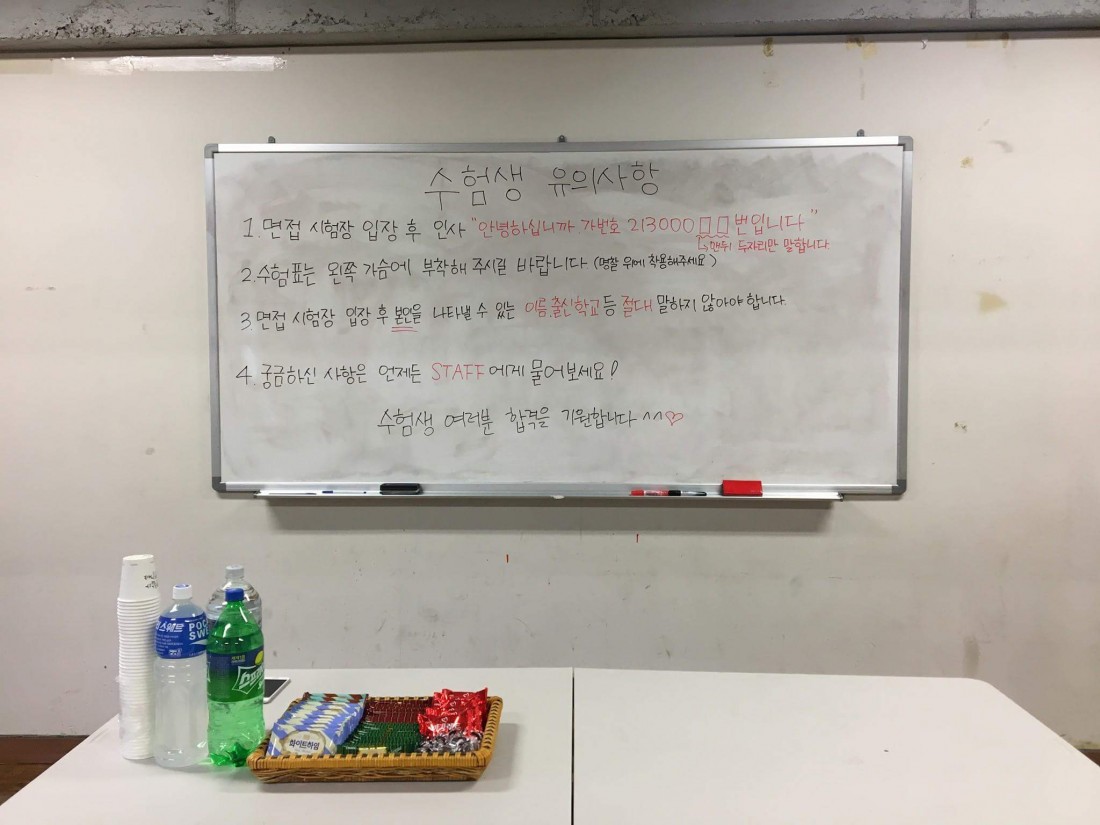 수험생 유의사항
1. 면접 시험장 입장 후 인사 "안녕하십니까 가번호 213000□□번입니다"
↳맨뒤 두자리만 말합니다
2. 수험표는 왼쪽 가슴에 부착해 주시길 바랍니다 (명찰 위에 착용해주세요)
3. 면접 시험장 입장 후 본인을 나타낼 수 있는 이름, 출신학교등 절대 말하지 않아야 합니다.
4. 궁금하신 사항은 언제든 STAFF에게 물어보세요!
수험생 여러분 합격을 기원합니다 ^^♡
스웨트
POC
SWE
스프라
화이트하임